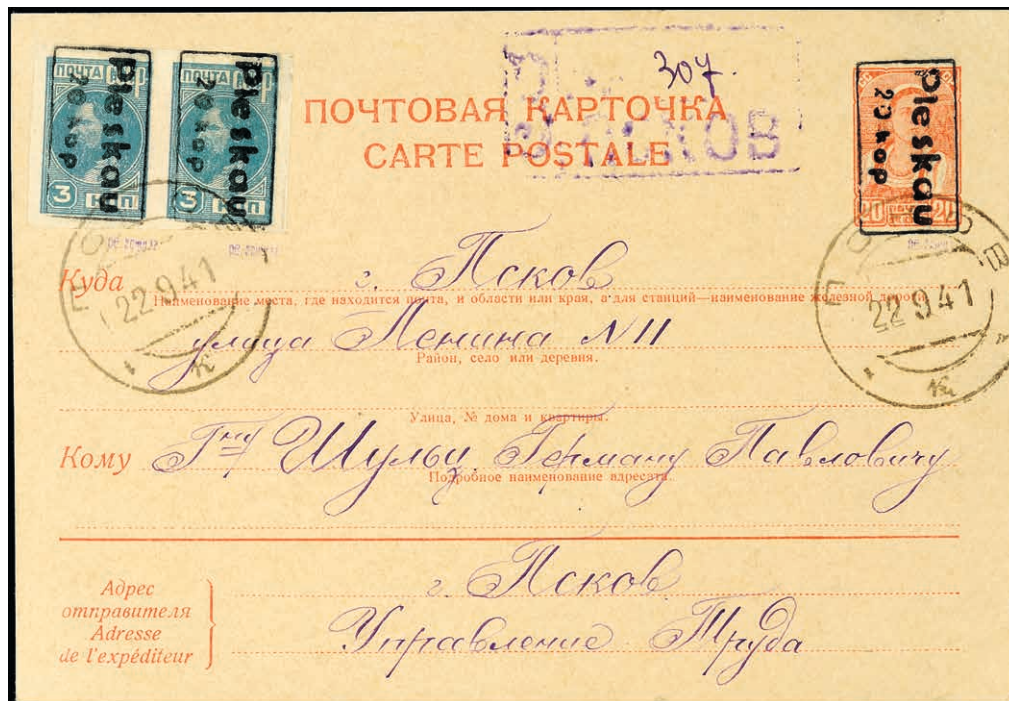 ПОЧТА СССР
3 КОП
pleskau
20 kop
ПОЧТА СССР
3 КОП
pleskau
20 kop
307.
ПСКОВ
ПОЧТОВАЯ КАРТОЧКА
CARTE POSTALE
20 20
pleskau
20 kop
ПСКОВ
22 9 41
к
ПСКОВ
22 9 41
к
Куда г. Псков
Наименование места, где находится почта, и области или края, а для станций—наименование железной дороги.
улица Ленина N 11
Район, село или деревня.
Улица, № дома и квартиры.
Кому Г-ну Шульц Герману Павловичу
Подробное наименование адресата.
Адрес
отправителя
Adresse
de l'expéditeur
г. Псков
Управление Труда